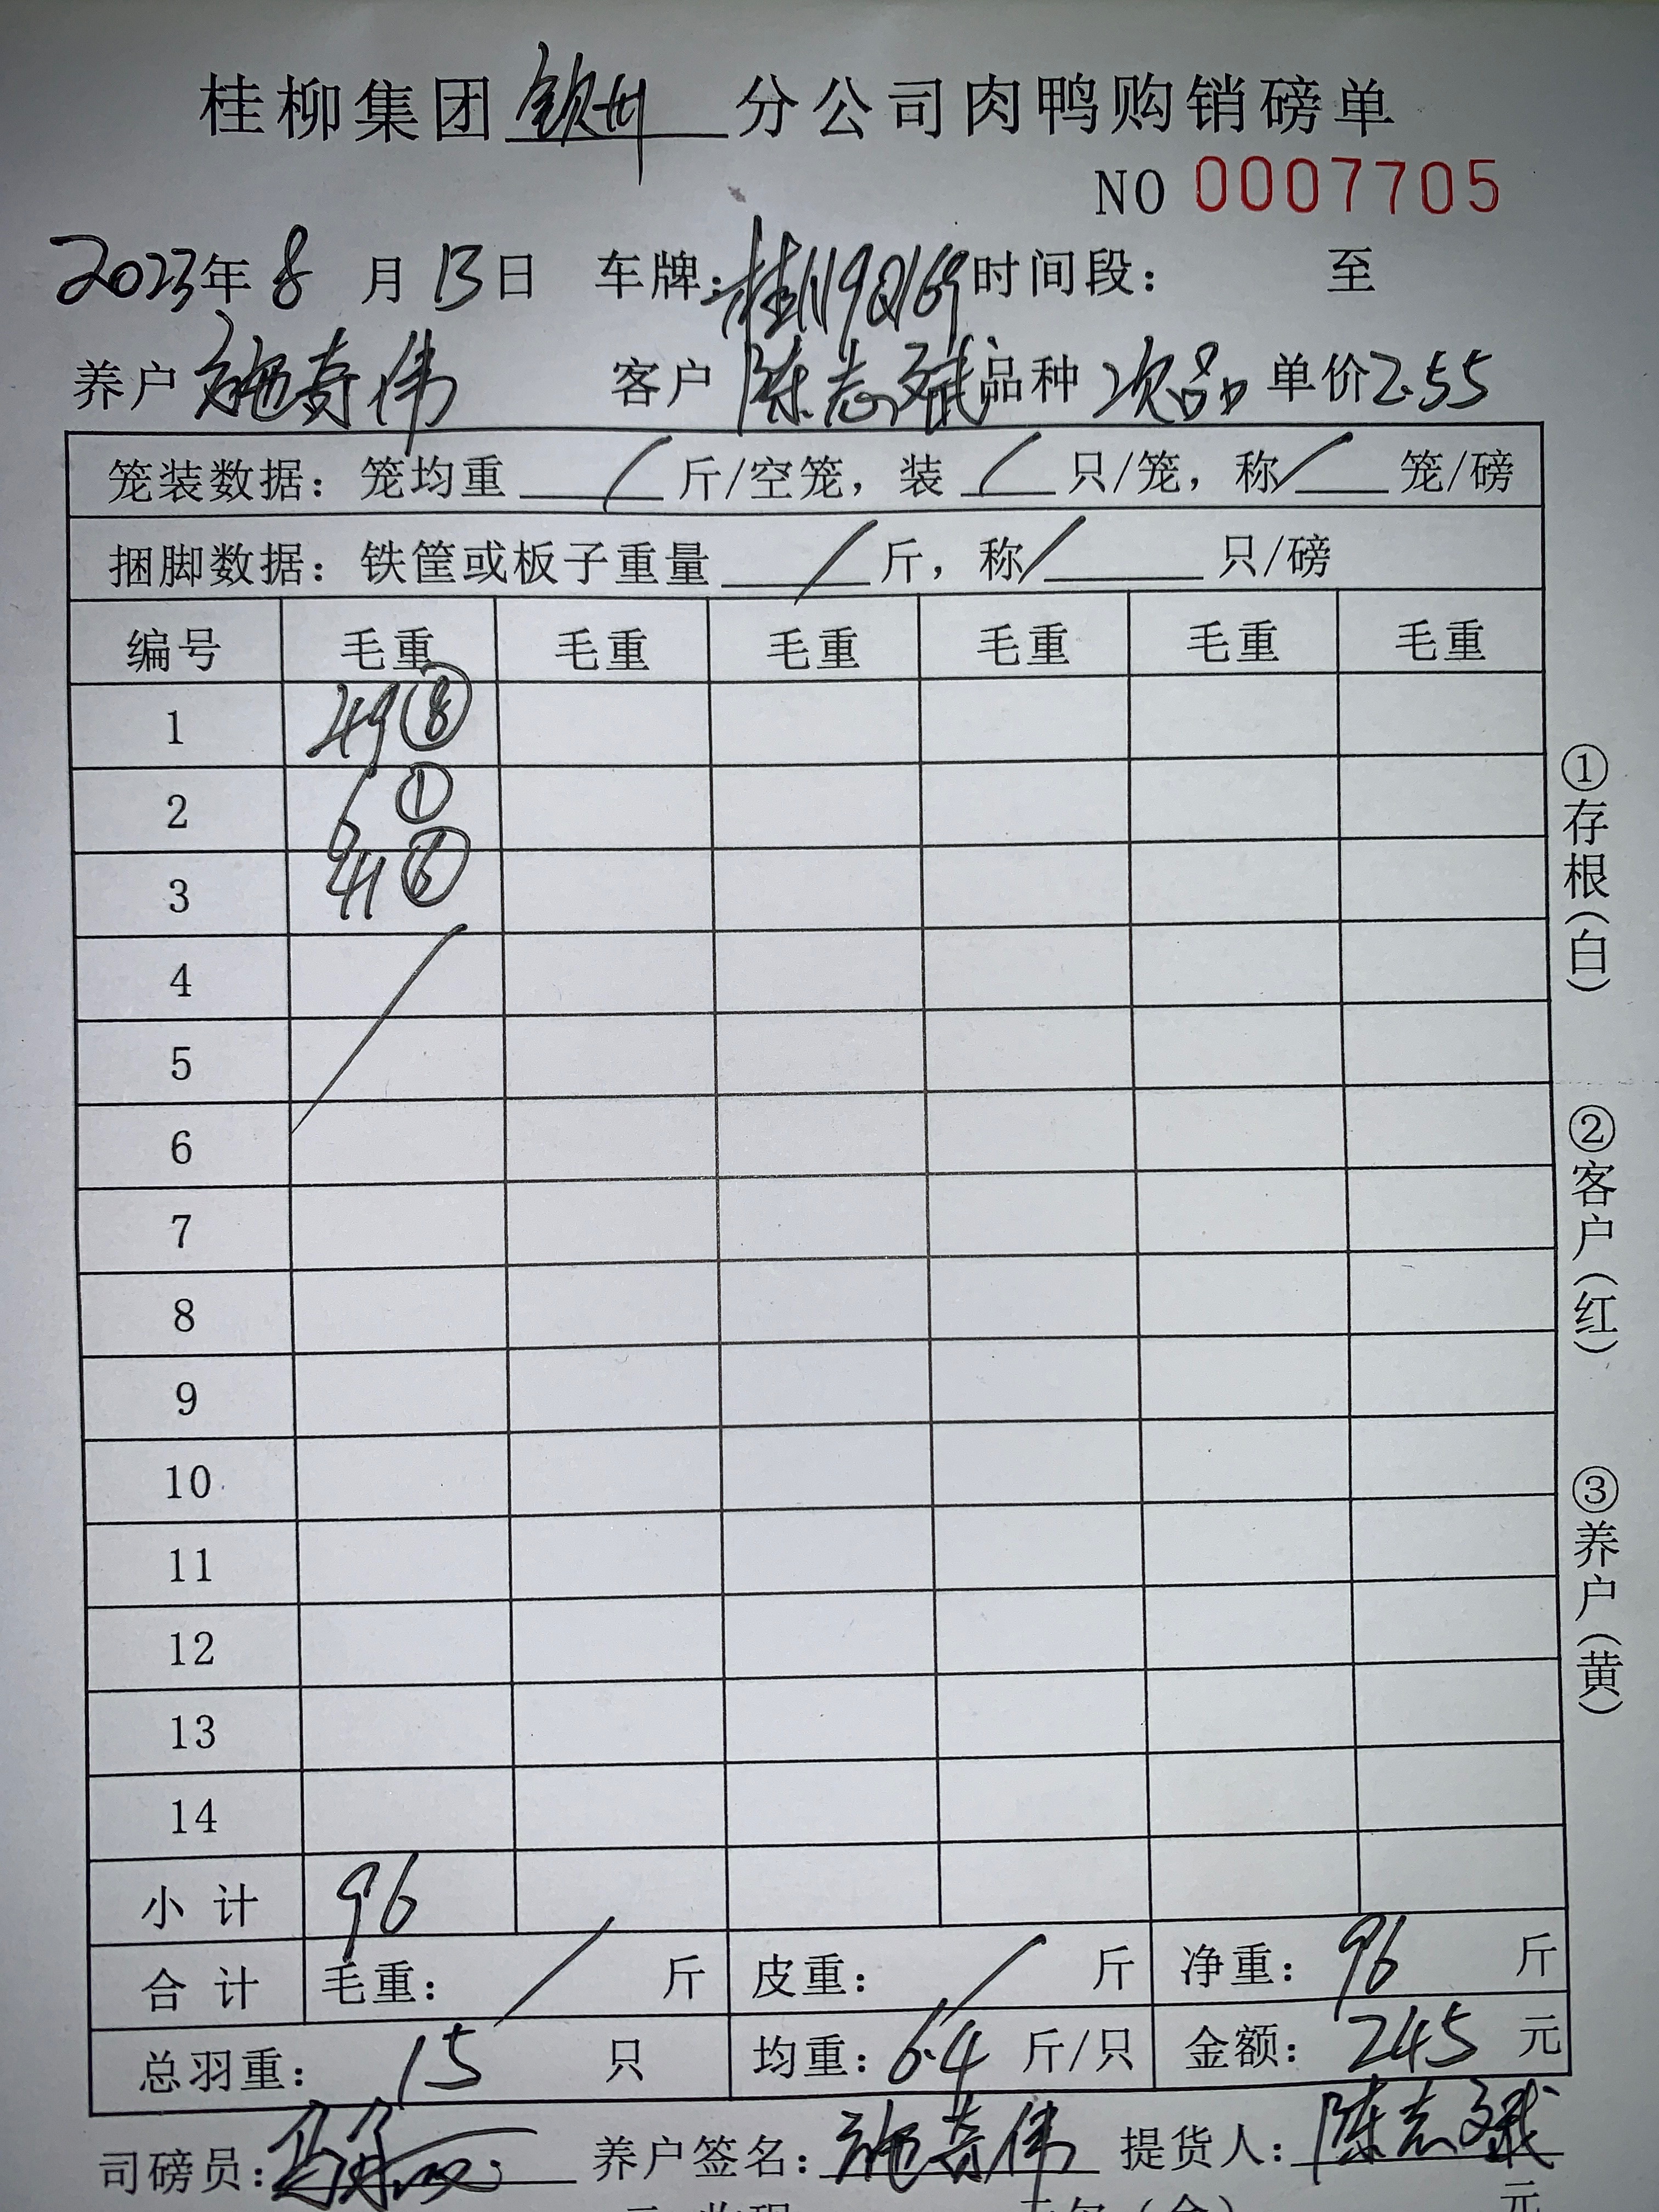 桂柳集团 钦州 分公司肉鸭购销磅单
NO 0007705
2023年 8 月 13日 车牌: 时间段: 至
养户 施寿伟 客户 陈志斌 品种 次品 单价2.55
笼装数据: 笼均重 / 斤/空笼, 装 / 只/笼, 称 / 笼/磅
捆脚数据: 铁筐或板子重量 / 斤, 称 / 只/磅
编号 毛重 毛重 毛重 毛重 毛重 毛重
1 49 ⑧
2 6 ①
3 41 ⑥
4
5
6
7
8
9
10
11
12
13
14
小计 96
合计 毛重: / 斤 皮重: / 斤 净重: 96 斤
总羽重: 15 只 均重: 6.4 斤/只 金额: 245 元
司磅员: 养户签名: 施寿伟 提货人: 陈志斌
元
①存根(白)
②客户(红)
③养户(黄)